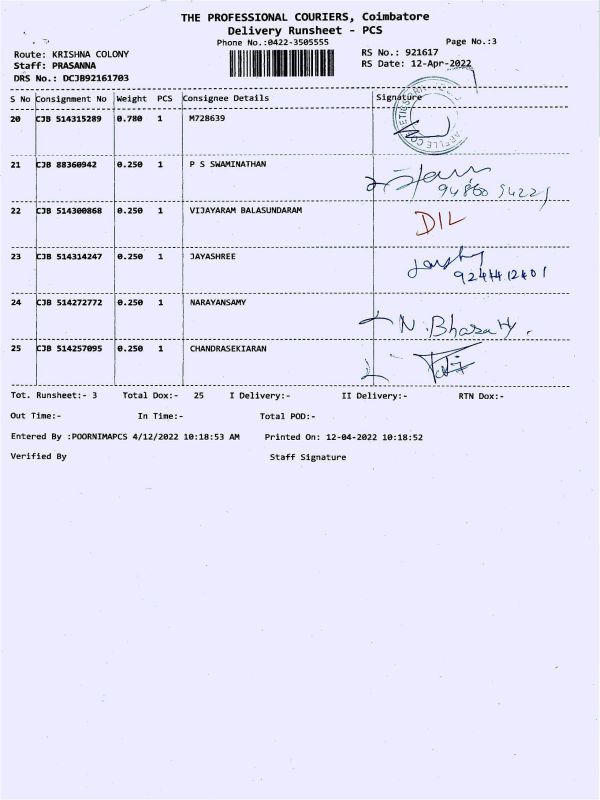 THE PROFESSIONAL COURIERS, Coimbatore
Delivery Runsheet - PCS
Phone No.:0422-3505555 Page No.:3
Route: KRISHNA COLONY RS No.: 921617
Staff: PRASANNA RS Date: 12-Apr-2022
DRS No.: DCJB92161703
S No Consignment No Weight PCS Consignee Details Signature
20 CJB 514315289 0.780 1 M728639
21 CJB 88360942 0.250 1 P S SWAMINATHAN
22 CJB 514300868 0.250 1 VIJAYARAM BALASUNDARAM DIL
23 CJB 514314247 0.250 1 JAYASHREE
24 CJB 514272772 0.250 1 NARAYANSAMY N. Bharathy.
25 CJB 514257095 0.250 1 CHANDRASEKIARAN
Tot. Runsheet:- 3 Total Dox:- 25 I Delivery:- II Delivery:- RTN Dox:-
Out Time:- In Time:- Total POD:-
Entered By :POORNIMAPCS 4/12/2022 10:18:53 AM Printed On: 12-04-2022 10:18:52
Verified By Staff Signature